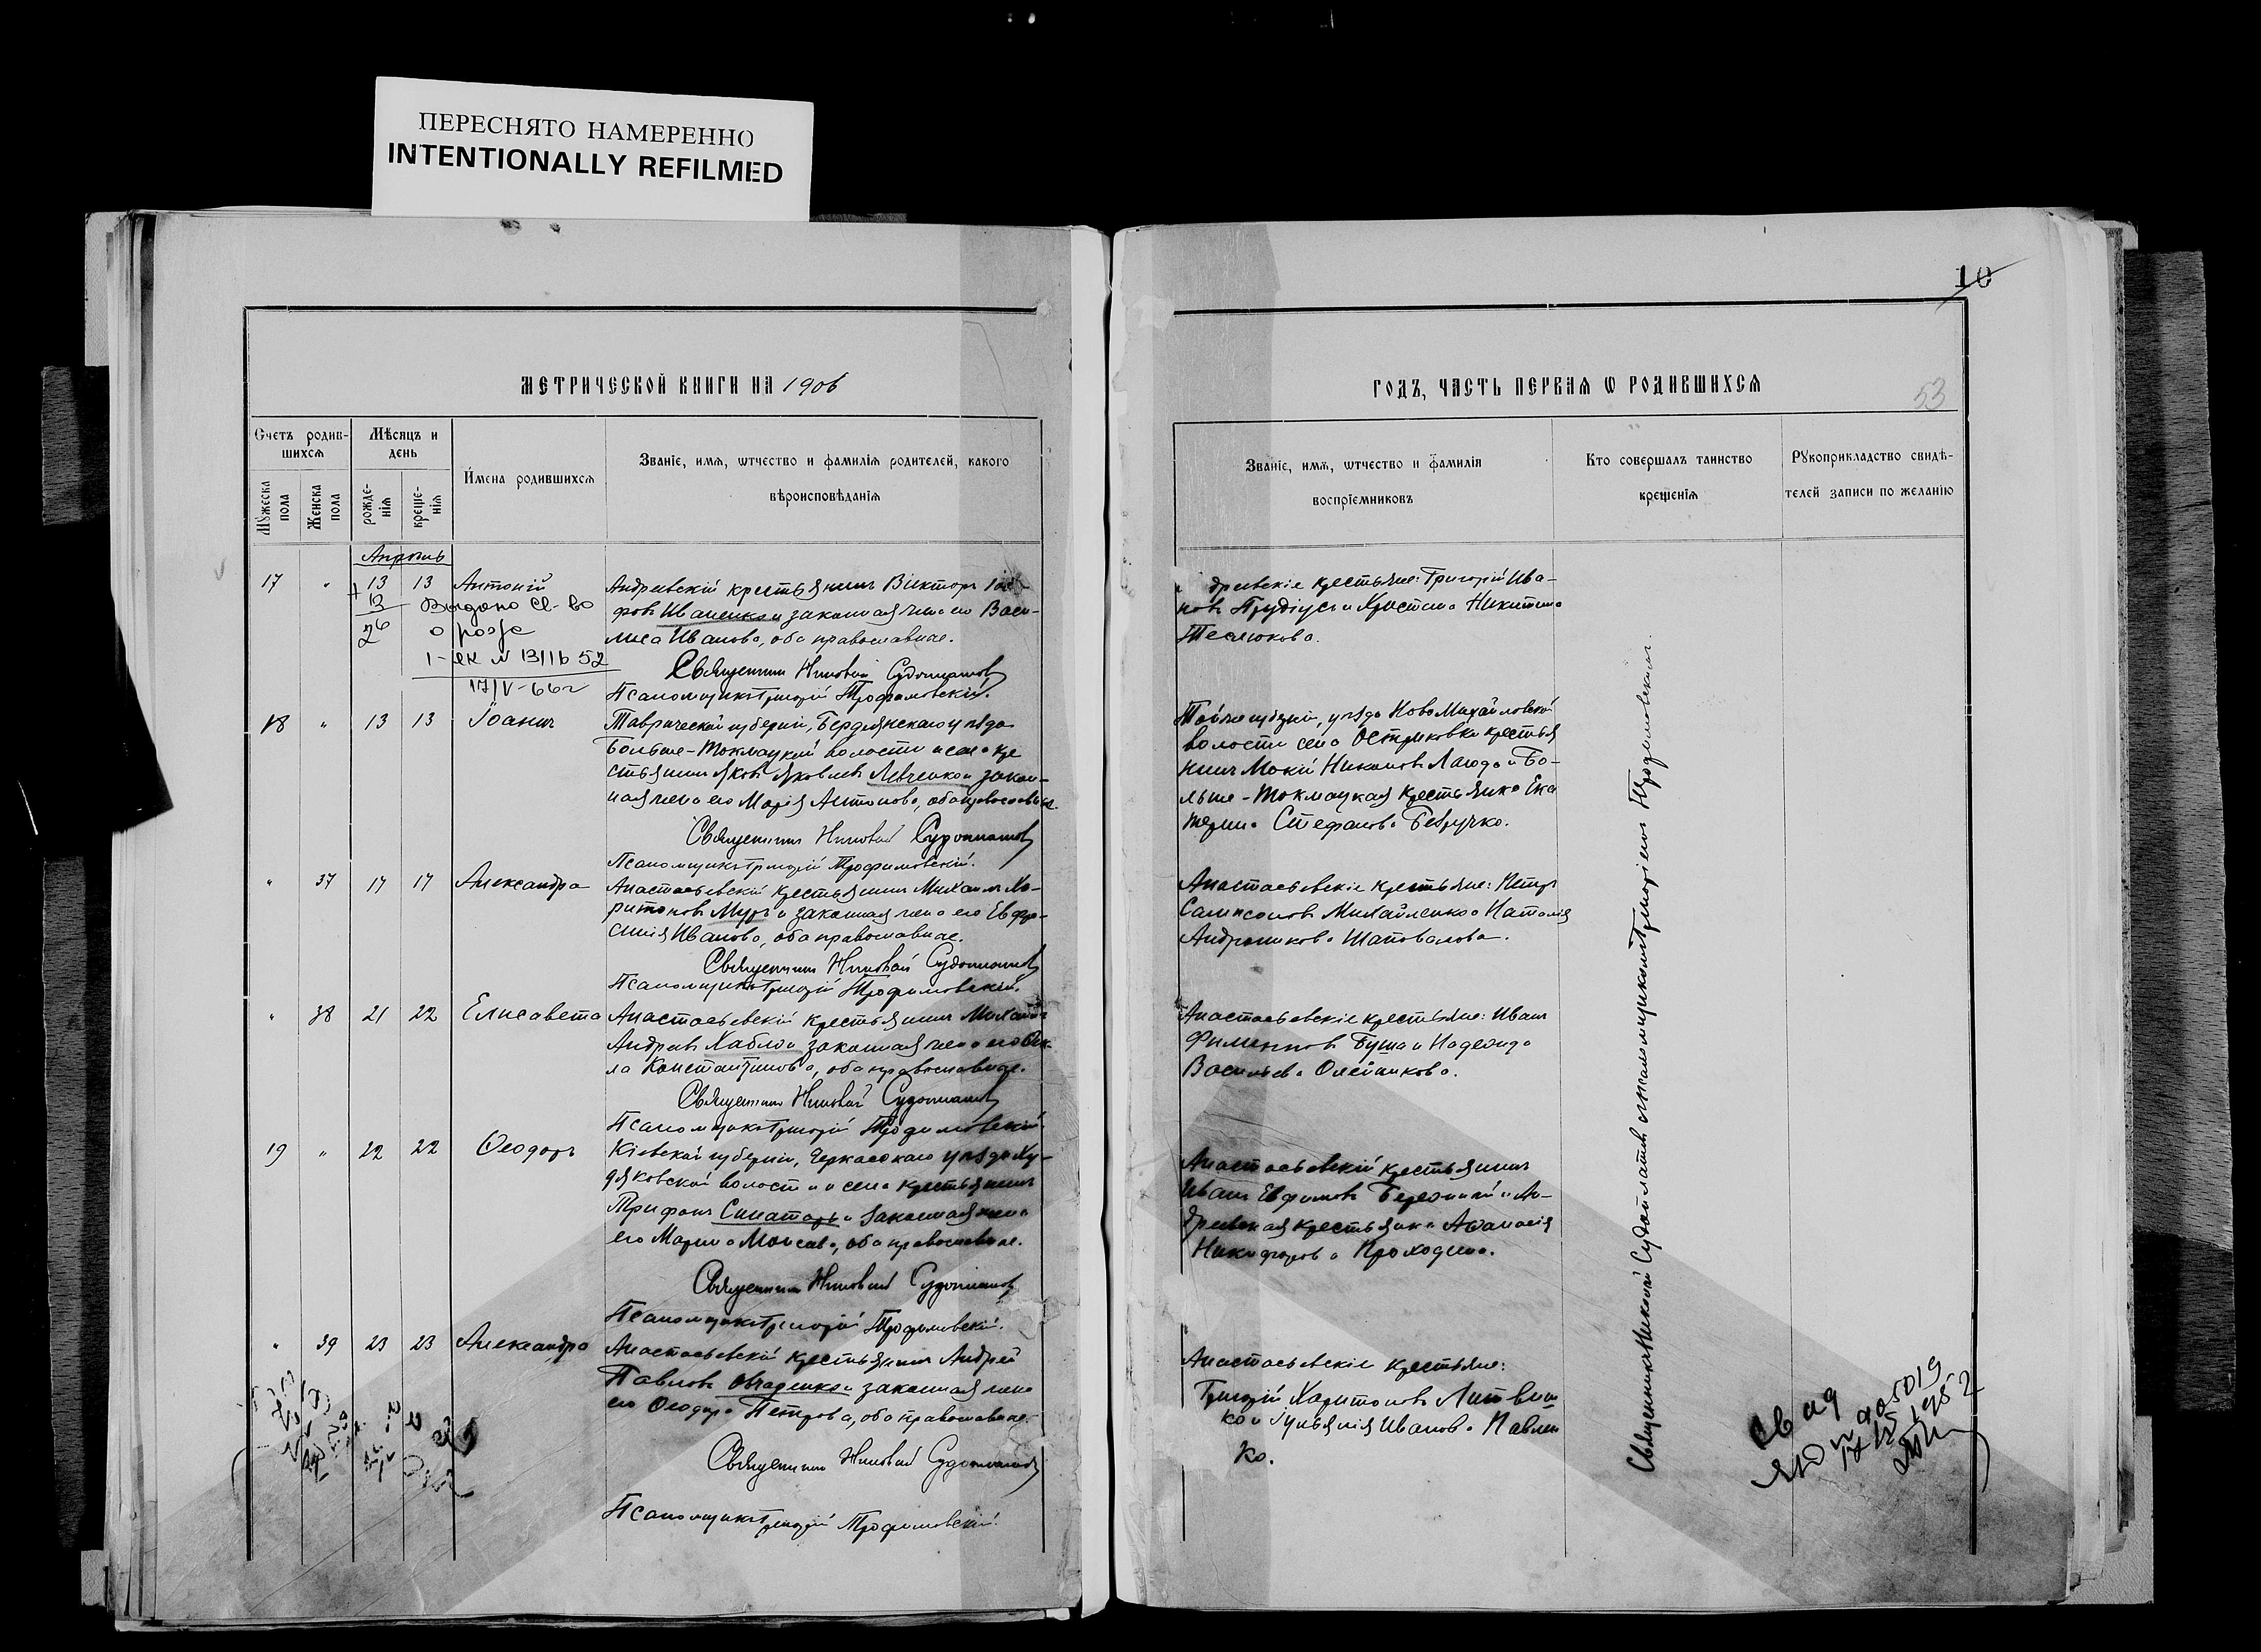 ПЕРЕСНЯТО НАМЕРЕННО
INTENTIONALLY REFILMED
10
МЕТРИЧЕСКОЙ КНИГИ НА 1906
ГОДЪ, ЧАСТЬ ПЕРВАЯ Ѡ РОДИВШИХСЯ
53
Счетъ родив-
шихся
Мѣсяцъ и
день
Мꙋжеска
пола
Женска
пола
рожде-
нія
креще-
нія
Имена родившихся
Званіе, имя, ѡтчество и фамилія родителей, какого
вѣроисповѣданія
Званіе, имя, ѡтчество и фамилія
воспріемниковъ
Кто совершалъ таинство
крещенія
Рꙋкоприкладство свидѣ-
телей записи по желанію
Апрѣль
17 " 13 13 Антоній
Выдано св-во
о рожд
17/V-66г
Андреевскій крестьянинъ Викторъ Іоси-
фовъ Иваненко и законная жена его Васи-
лиса Иванова, оба православные.
Священникъ Николай Судоплатовъ
Псаломщикъ Григорій Трофимовскій.
дреевскіе крестьяне: Григорій Ива-
новъ Прудіусъ и Христина Никитина
Теслюкова.
18 " 13 13 Іоаннъ
Таврической губерніи, Бердянскаго уѣзда
Больше-Токмацкой волости и села кре
стьянинъ Яковъ Яковлевъ Левченко и закон-
ная жена его Марія Антонова, оба православные.
Священникъ Николай Судоплатовъ
Псаломщикъ Григорій Трофимовскій.
Той же губерніи, уѣзда Ново Михайловской
волости села Остриковки крестья
нинъ Мокій Никоновъ Лагода и Бо-
льше-Токмацкая крестьянка Ека
терина Стефанова Безручко.
" 37 17 17 Александра
Анастасьевскій крестьянинъ Михаилъ Ха-
ритоновъ Муръ и законная жена его Евфро-
синія Иванова, оба православные.
Священникъ Николай Судоплатовъ
Псаломщикъ Григорій Трофимовскій.
Анастасьевскіе крестьяне: Петръ
Сампсоновъ Михайленко и Наталія
Андроникова Шаповалова.
" 38 21 22 Елисавета
Анастасьевскій крестьянинъ Михаилъ
Андреевъ Хабло и законная жена его Фек-
ла Константинова, оба православные.
Священникъ Николай Судоплатовъ
Псаломщикъ Григорій Трофимовскій.
Анастасьевскіе крестьяне: Иванъ
Филипповъ Буша и Надежда
Васильева Олейникова.
19 " 22 22 Ѳеодоръ
Кіевской губерніи, Черкасскаго уѣзда Ху-
дяковской волости и села крестьянинъ
Трифонъ Синатаръ и законная жена
его Марина Моисеева, оба православные.
Священникъ Николай Судоплатовъ
Псаломщикъ Григорій Трофимовскій.
Анастасьевскій крестьянинъ
Иванъ Евфимовъ Бережной и Ан-
дреевская крестьянка Аѳанасія
Никифорова Проходина.
" 39 23 23 Александра
Анастасьевскій крестьянинъ Андрей
Павловъ Овчаренко и законная жена
его Ѳеодора Петрова, оба православные.
Священникъ Николай Судоплатовъ
Псаломщикъ Григорій Трофимовскій.
Анастасьевскіе крестьяне:
Григорій Харитоновъ Литвин
ко и Іуліанія Иванова Павлен
ко.
Священникъ Николай Судоплатовъ съ псаломщикомъ Григоріемъ Трофимовскимъ.